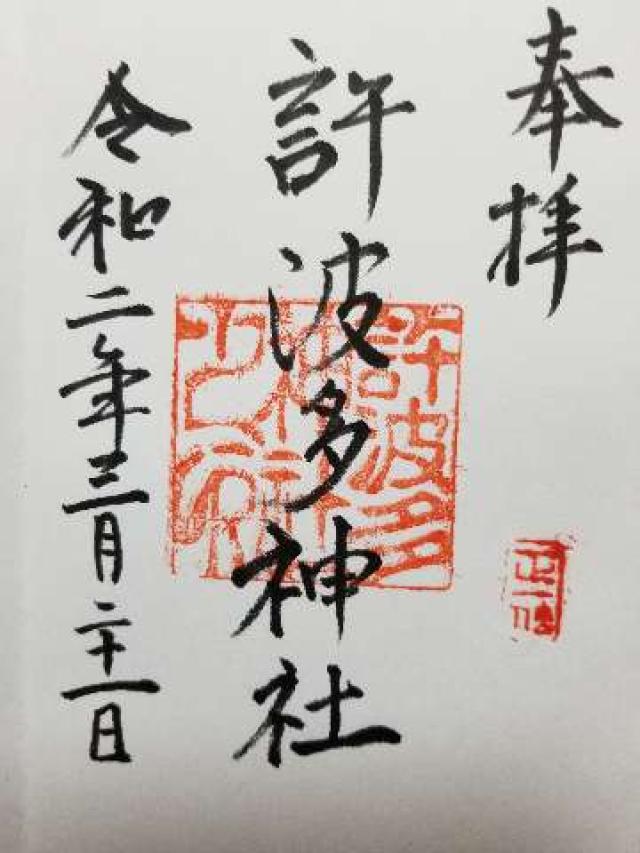 奉拝
許波多神社
令和二年三月二十一日
許波多
神社
之印
正一位